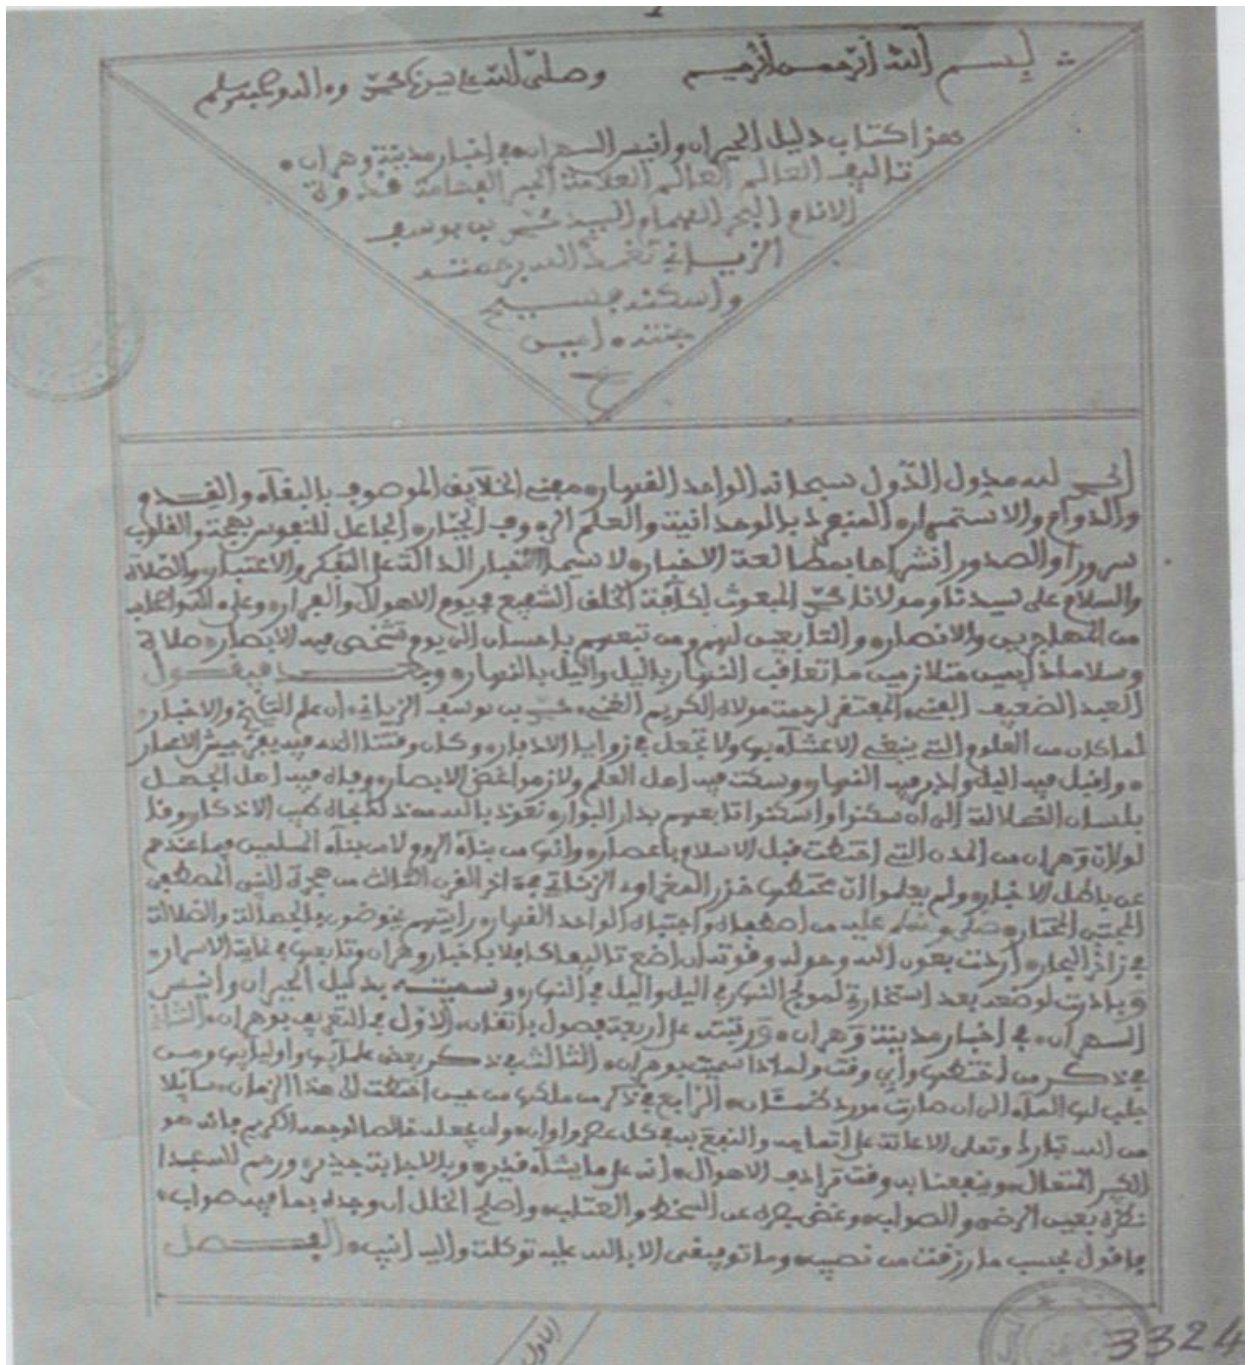 1
بسم الله الرحمن الرحيم وصلى الله على سيدنا محمد وءاله وصحبه وسلم
هذا كتاب دليل الحيران وأنيس السهران في أخبار مدينة وهران
تأليف العالم العالم العلامة الحبر الفهامة قدوة
الأنام البحر الهمام السيد محمد بن يوسف
الزياني تغمده الله برحمته
وأسكنه فسيح
جنته ءامين
الحمد لله مدول الدول سبحانه الواحد القهار مفني الخلايق الموصوف بالبقاء والقدم
والدوام والاستمرار المنفرد بالوحدانية والعلم الرءوف الجبار الجاعل للنفوس بهجة والقلوب
سرورا والصدور انشراحا بمطالعة الأخبار لا سيما الأخبار الدالة على التفكر والاعتبار والصلاة
والسلام على سيدنا ومولانا محمد المبعوث لكافة الخلق الشفيع في يوم الأهوال وعلى
من المهاجرين والأنصار والتابعين لهم ومن تبعهم بإحسان إلى يوم تشخص فيه الأبصار صلاة
وسلاما دايمين متلازمين ما تعاقب النهار باليل واليل بالنهار وبعد فيقول
العبد الضعيف الفقير المفتقر لرحمة مولاه الكريم الغني محمد بن يوسف الزياني أن علم التاريخ والأخبار
لما كان من العلوم التي ينبغي الاعتناء بها ولا تجعل في زوايا الإدبار وكان وقتنا هذا فيه جيش الأعمار
وأقبل فيه اليل وأدبر فيه النهار وسكت فيه أهل العلم ولازموا غض الأبصار وفاه فيه أهل الجهل
بلسان الضلالة إلى أن سكنوا وأسكنوا تابعهم بدار البوار نعوذ بالله
أن وهران من المدن التي اختطت قبل الإسلام بأعصار وأنها من بناء الروم لا من بناء المسلمين فيما عندهم
من باطل الأخبار ولم يعلموا أن مختطها خزر المغراوي الزناتي في ءاخر القرن الثالث من هجرة النبي المصطفى
المجتبى المختار صلى وسلم عليه من اصطفاه واجتباه الواحد القهار رأيتهم يخوضون بالجهالة والضلالة
في زاخر البحار أردت بعون الله وحوله وقوته أن أضع تأليفا كافلا بأخبار وهران وتابعها في غاية الأسرار
وبادرت لوضعه بعد استخارة لمولج النهار في اليل واليل في النهار وسميته بدليل الحيران وأنيس
السهران في أخبار مدينة وهران ورتبته على أربعة فصول بإتقان الأول في التعريف بوهران الثاني
في ذكر من اختطها وأي وقت ولماذا سميت بوهران الثالث في ذكر بعض علمائها وأوليائها ومن
جلب لها الماء إلى أن صارت مورد ظمئان الرابع في ذكر من ملكها من حين اختطت إلى هذا الزمان سايلا
من الله تبارك وتعلى الإعانة على إتمامه والنفع به في كل عصر وأوان وأن يجعله خالصا لوجهه الكريم فإنه هو
الكبير المتعال وينفعنا به وقت ترادف الأهوال إنه على ما يشاء قدير وبالإجابة جدير ورحم الله عبدا
نظره بعين الرضى والصواب وغض بصره عن السخط والعتاب وأصلح الخلل إن وجده بما فيه صواب
فأقول بحسب ما رزقت من نصيب وما توفيقي إلا بالله عليه توكلت وإليه أنيب الفصل
الأول
3324